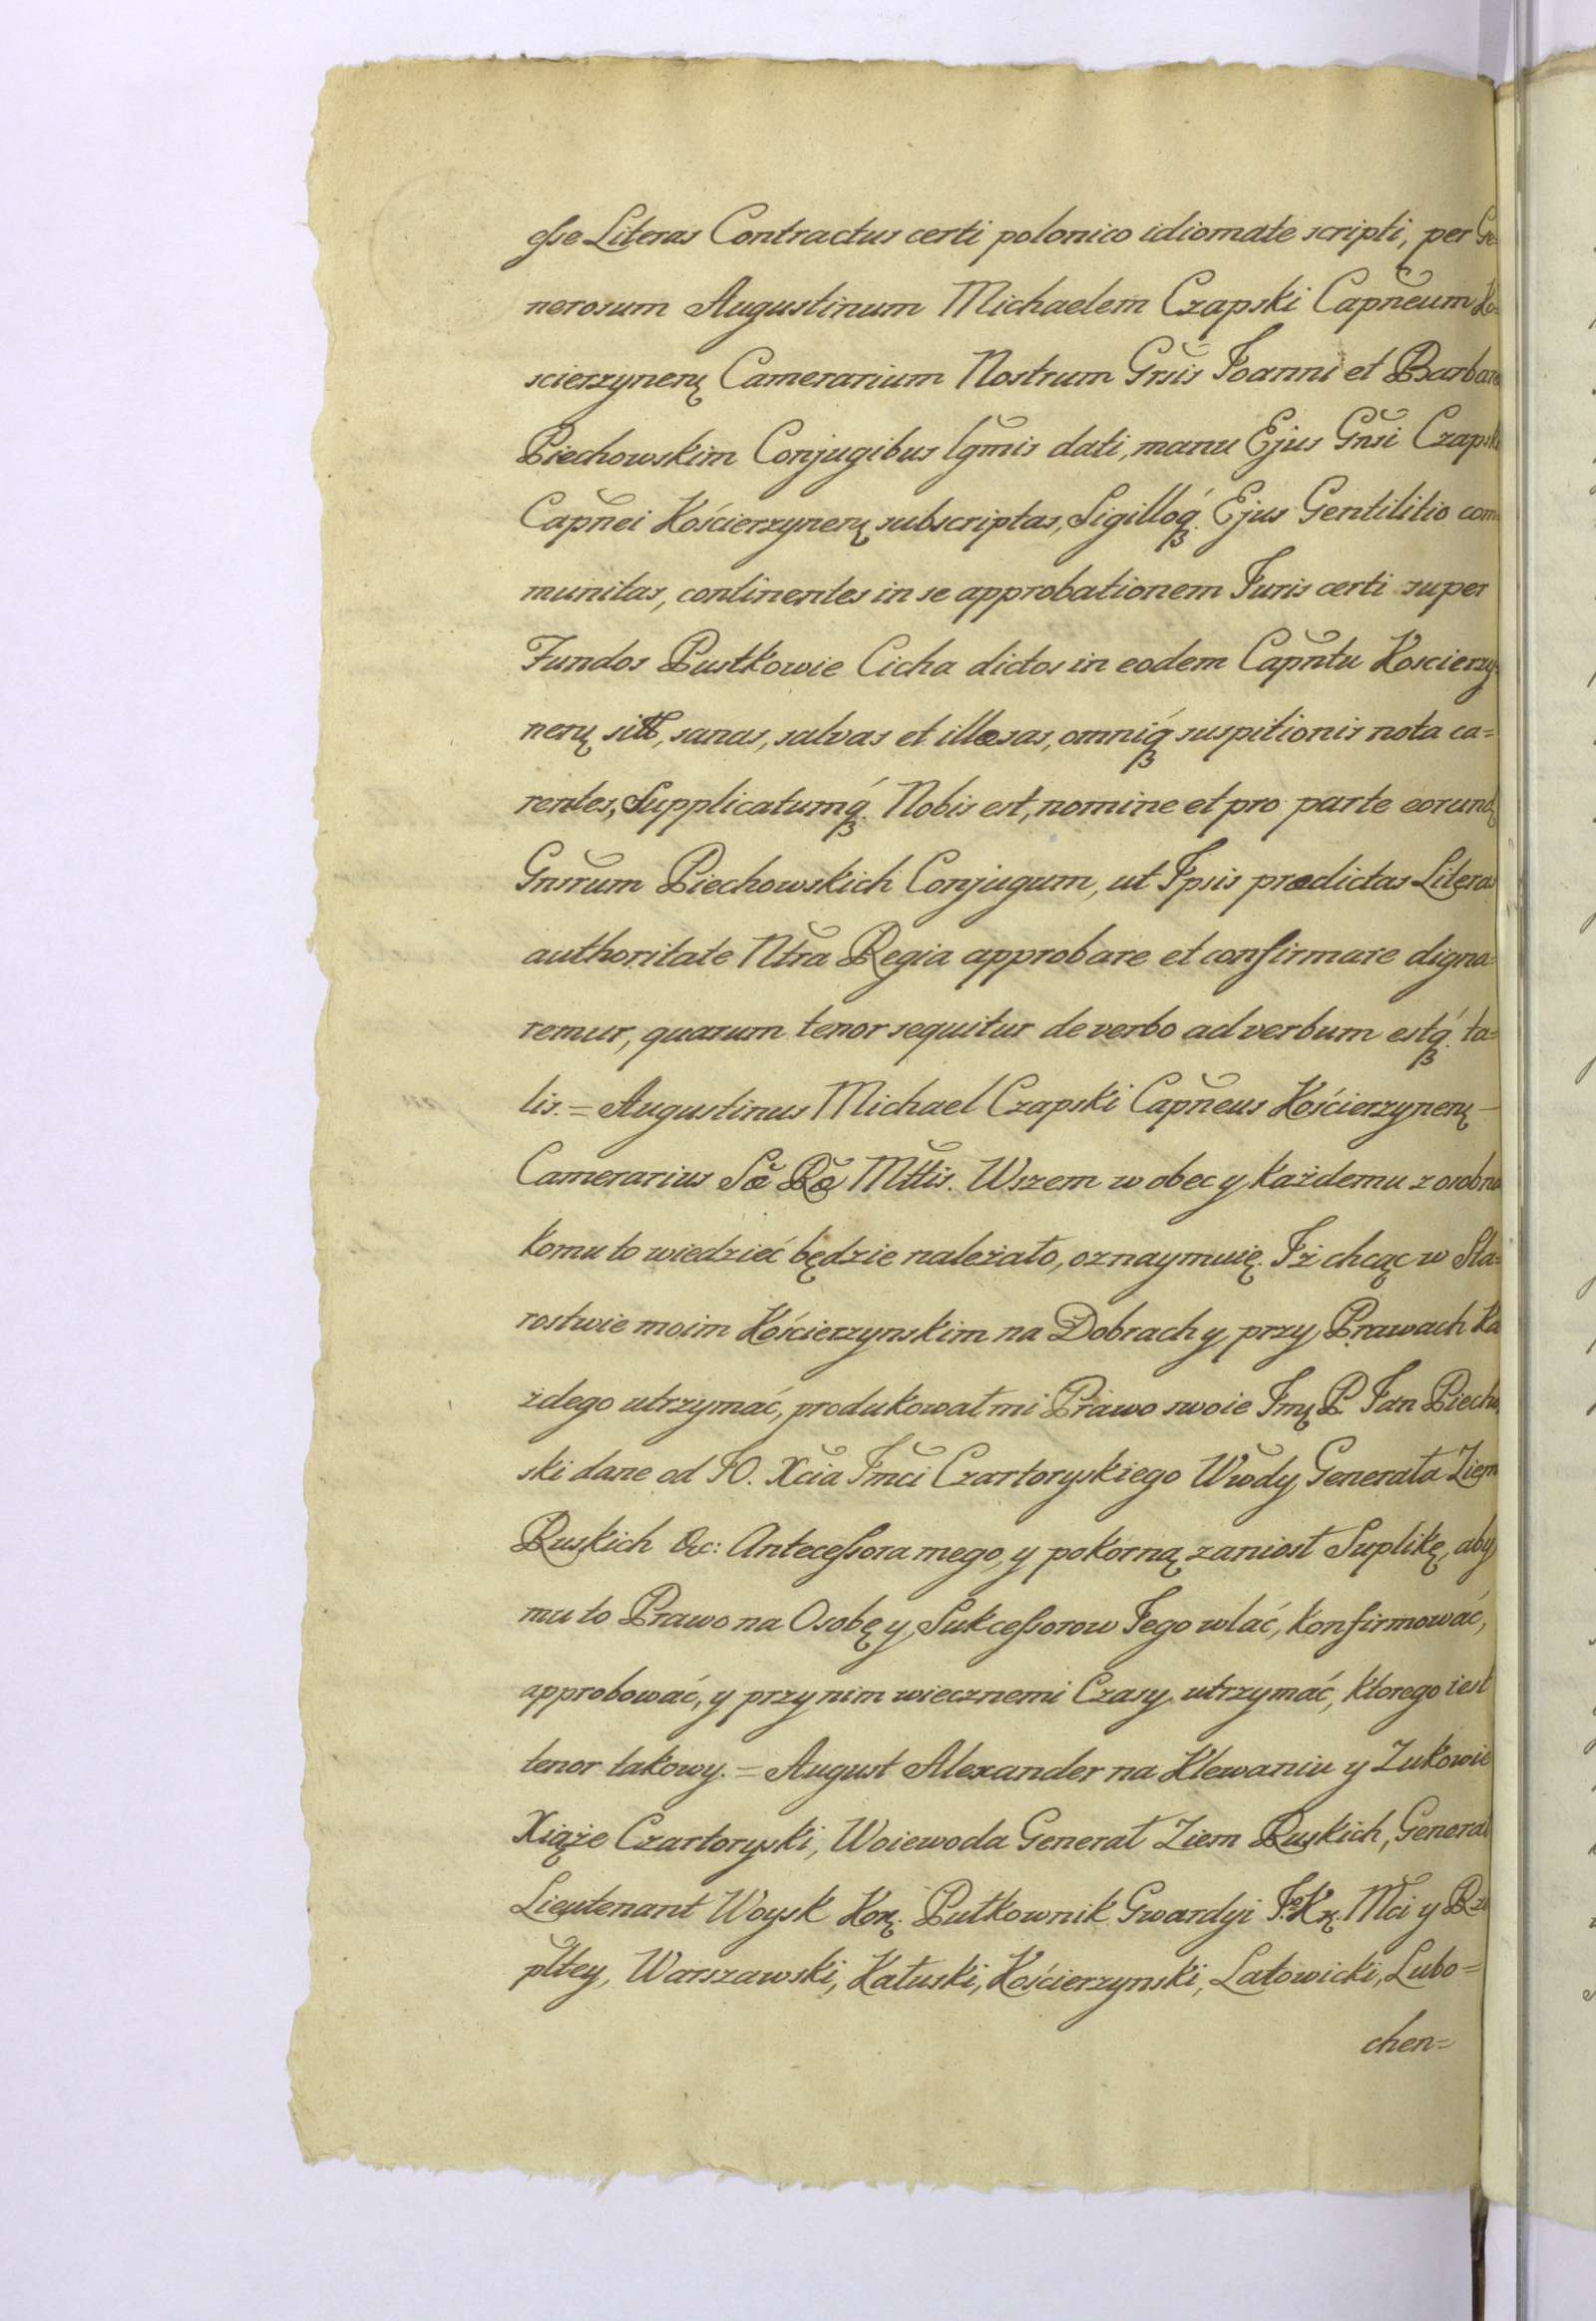 esse Literas Contractus certi polonico idiomate scripti, per Ge=
nerosum Augustinum Michaelem Czapski Capñeum Ko=
scierzynenę Camerarium Nostrum Gnsis Joanni et Barbaræ
Piechowskim Conjugibus lgmis dati, manu Ejus Gnsi Czapski
Capñei Kościerzynenę subscriptas, Sigilloq́ꝫ Ejus Gentilitio com=
munitas, continentes in se approbationem Juris certi super
Fundos Pustkowie Cicha dictos in eodem Capñtu Koscierzy=
nenę sitt, sanas, salvas et illæsas, omniq́ꝫ suspitionis nota ca=
rentes, Supplicatumq́ꝫ Nobis est, nomine et pro parte eorundę
Gnsrum Piechowskich Conjugum, ut Ipsis prædictas Literas
authoritate Ntra Regia approbare et confirmare digna=
remur, quarum tenor sequitur de verbo ad verbum estq́ꝫ ta=
lis. = Augustinus Michael Czapski Capñeus Kościerzynenę
Camerarius Sæ Ræ Mttis. Wszem w obec y każdemu z osobna
komu to wiedzieć będzie należało, oznaymuię. Iż chcąc w Sta=
rostwie moim Kościerzynskim na Dobrach y przy Prawach Ka
żdego utrzymać, produkował mi Prawo swoie Jmę P. Jan Piecho
ski dane od JO. Xcia Jmci Czartoryskiego Wwdy Generała Ziem
Ruskich &c: Antecessora mego, y pokorną zaniosł Suplikę, aby
mu to Prawo na Osobę y Sukcessorow Jego wlać, konfirmować,
approbować, y przy nim wiecznemi Czasy utrzymać, ktorego iest
tenor takowy. = August Alexander na Klewaniu y Zukowie
Xiąże Czartoryski, Woiewoda Generał Ziem Ruskich, Generał
Lieutenant Woysk Korę. Pułkownik Gwardyi J. Kę. Mci y Rze
pltey, Warszawski, Kałuski, Kościerzynski, Latowicki, Lubo=
chen=